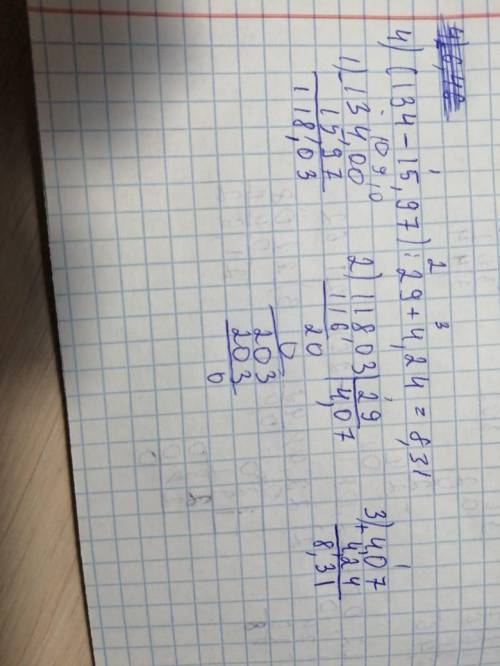 4) (134-15,97):29+4,24=8,31
1 2 3
1) 134,00
10 9 10
15,97
118,03
2) 118,03 | 29
116 4,07
20
0
203
203
0
3) 4,07
+ 4,24
8,31